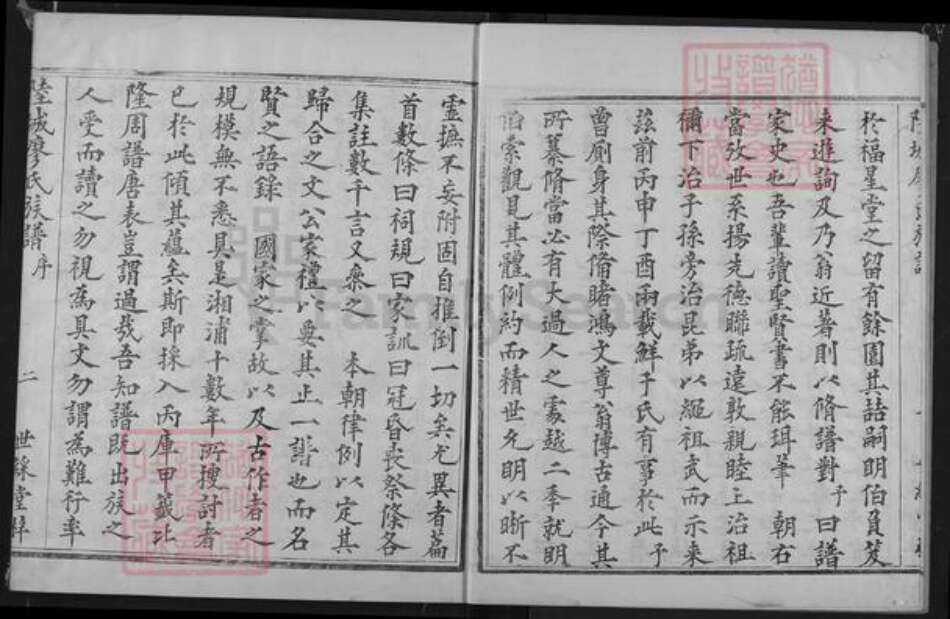 於福星堂之留有餘園其喆嗣明伯負笈
來遊詢及乃翁近著則以脩譜對予曰譜
家史也吾輩讀聖賢書不能珥筆 朝右
當攷世系揚先德聯疏遠敦親睦上治祖
禰下治子孫旁治昆弟以繩祖武而示来
茲前丙申丁酉兩載鮮于氏有事於此予
曾廁身其際備睹鴻文尊翁博古通今其
所纂脩當必有大過人之處越二季就明
伯索觀見其體例約而精世允明以晰不
靈撫不妄附固自推倒一切矣尤異者篇
首數條曰祠規曰家訓曰冠昏喪祭條各
集註數千言又桼之 本朝律例以定其
歸合之文公家禮以要其止一譜也而名
賢之語錄 國家之掌故以及古作者之
規模無不悉具是湘浦十數年所搜討者
已於此傾其蘊矣斯即採入丙庫甲籤比
隆周譜唐表豈謂過哉吾知譜既出族之
人受而讀之勿視為具文勿謂為難行率
陸城廖氏族譜序 二 世綵堂梓